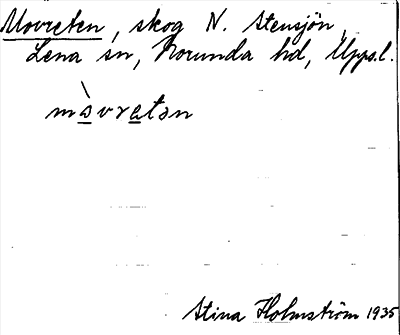 Movreten, skog N. Stensjön,
Lena sn, Norunda hd, Uppl.
mòvretən
Stina Holmström 1935